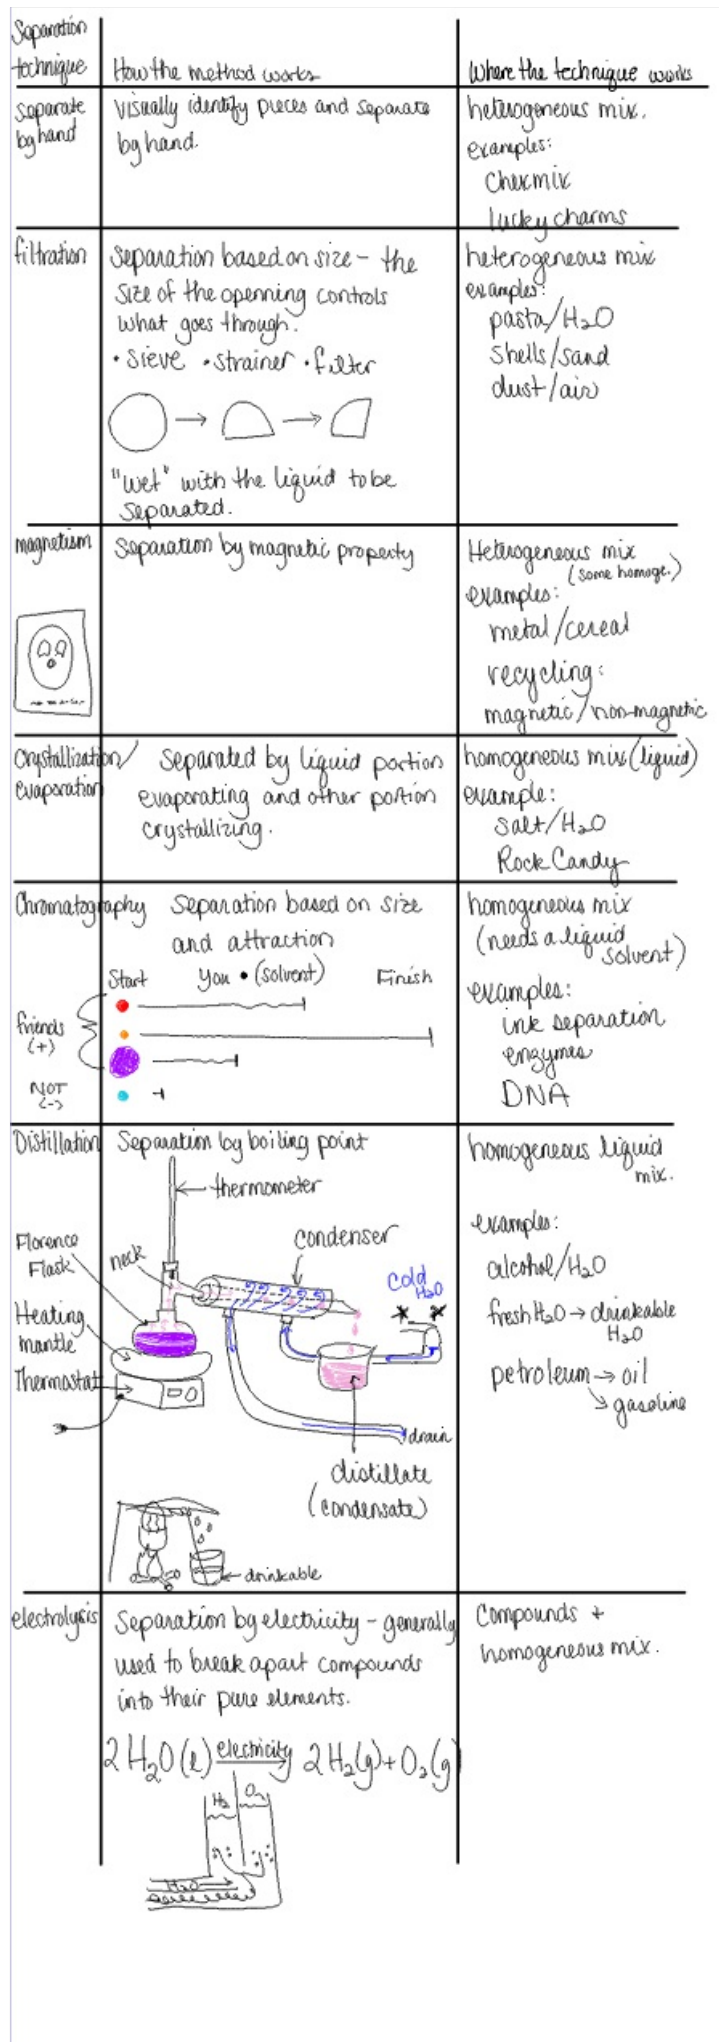 Separation
technique
How the method works
Where the technique works
separate
by hand
visually identify pieces and separate
by hand.
heterogeneous mix.
examples:
Chex mix
lucky charms
filtration
Separation based on size - the
size of the openning controls
what goes through.
• sieve • strainer • filter
"wet" with the liquid to be
separated.
heterogeneous mix
examples:
pasta/H₂O
shells/sand
dust/air
magnetism
Separation by magnetic property
Heterogeneous mix
(some homoge.)
examples:
metal/cereal
recycling:
magnetic/non-magnetic
Crystallization/
evaporation
Separated by liquid portion
evaporating and other portion
crystallizing.
homogeneous mix (liquid)
example:
Salt/H₂O
Rock Candy
Chromatography
Separation based on size
and attraction
Start
You • (solvent)
Finish
friends
(+)
NOT
(-)
homogeneous mix
(needs a liquid
solvent)
examples:
ink separation
enzymes
DNA
Distillation
Separation by boiling point
thermometer
condenser
neck
Florence
Flask
Cold
H₂O
Heating
mantle
Thermostat
drain
distillate
(condensate)
drinkable
homogeneous liquid
mix.
examples:
alcohol/H₂O
fresh H₂O → drinkable
H₂O
petroleum → oil
↘ gasoline
electrolysis
Separation by electricity - generally
used to break apart compounds
into their pure elements.
2H₂O(l) electricity→ 2H₂(g) + O₂(g)
H₂ O₂
H₂O
Compounds +
homogeneous mix.